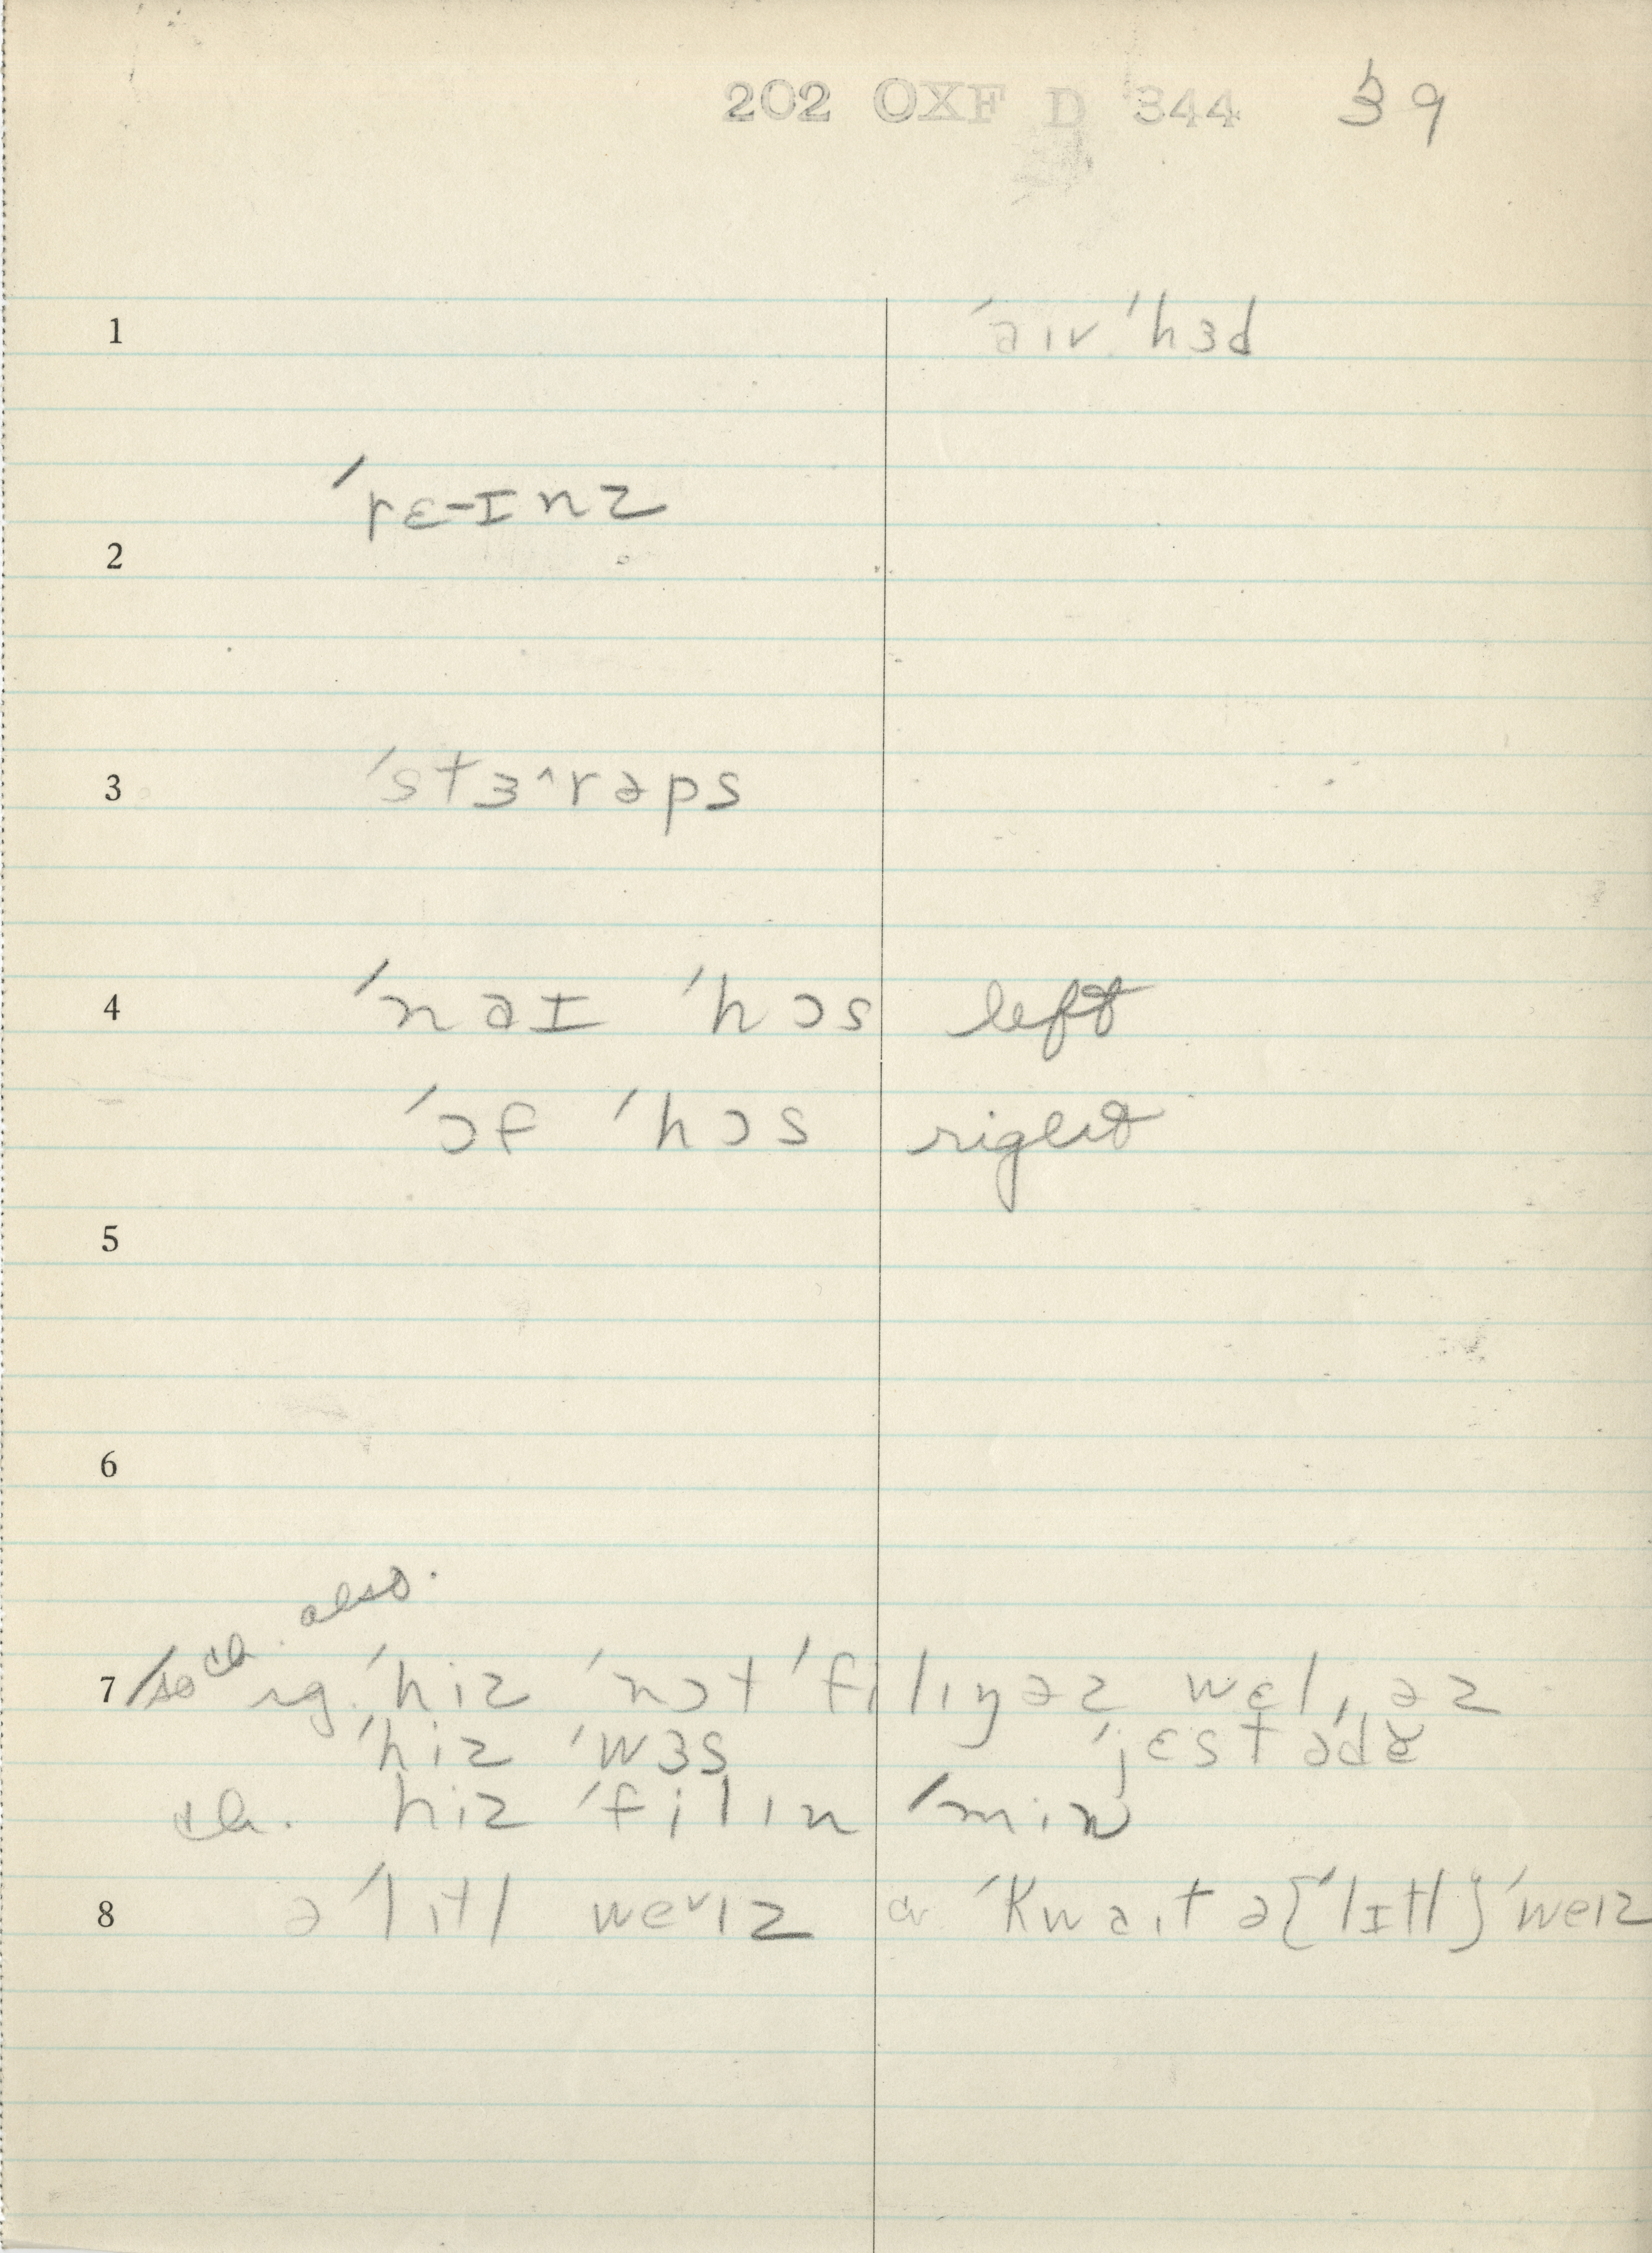 202 OXF D 344 39
1 ˈaɪv ˈhɜd
ˈrɛ-ɪnz
2
3 ˈstɜ^rəps
4 ˈnəɪ ˈhɔs left
ˈɔf ˈhɔs right
5
6
also.
7 ˈhiz ˈnɔt ˈfilɪŋ əz wɛl, əz
ˈhiz ˈwɜs ˈjɛstədɚ
ch. hiz ˈfilin ˈmin
8 ə ˈlɪtl we˅ɪz or ˈkwaɪt ə {ˈlɪtl} ˈweɪz